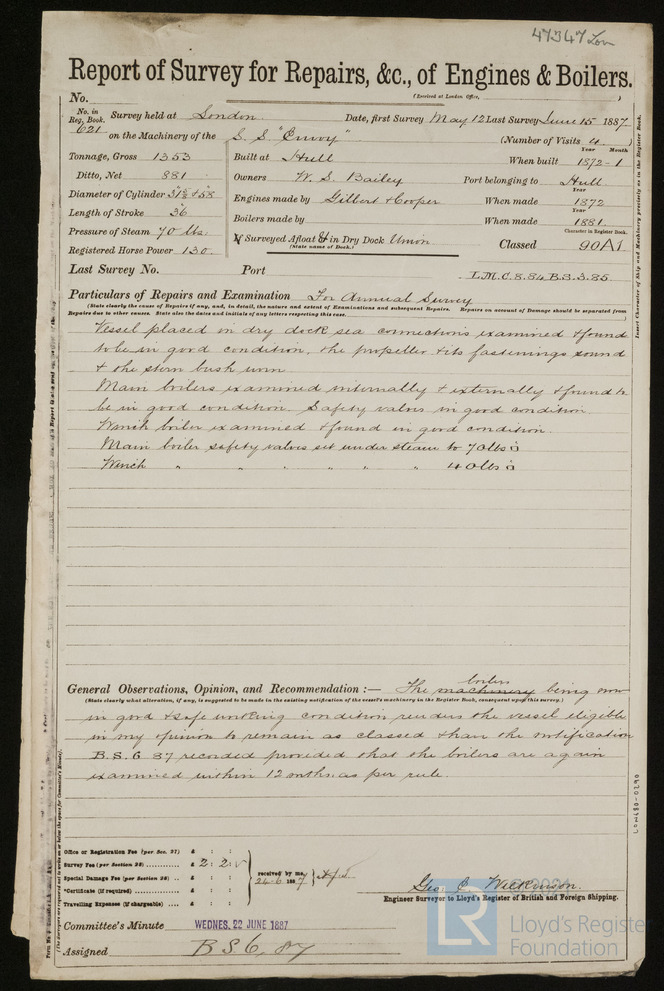 47347 Lon
Report of Survey for Repairs, &c., of Engines & Boilers.
No. (Received at London Office, )
No. in Reg. Book. 621 Survey held at London Date, first Survey May 12 Last Survey June 15 1887
on the Machinery of the S. S. "Envoy" (Number of Visits 4 )
Tonnage, Gross 1353 Built at Hull When built Year Month 1872-1
Ditto, Net 881 Owners W. S. Bailey Port belonging to Hull
Diameter of Cylinder 31½ + 58 Engines made by Gilbert & Cooper When made Year 1872
Length of Stroke 36 Boilers made by When made Year 1881
Pressure of Steam 70 lbs. If Surveyed Afloat & in Dry Dock Union Classed Character in Register Book. 90A1
Registered Horse Power 130. (State name of Dock.)
Last Survey No. Port L.M.C. 8.84 B.S.3.85
Particulars of Repairs and Examination For Annual Survey
(State clearly the cause of Repairs if any, and, in detail, the nature and extent of Examinations and subsequent Repairs. Repairs on account of Damage should be separated from
Repairs due to other causes. State also the dates and initials of any letters respecting this case.
Vessel placed in dry dock sea connections examined & found
to be in good condition, the propeller & its fastenings sound
& the stern bush worn
Main boilers examined internally & externally & found to
be in good condition. Safety valves in good condition
Winch boiler examined & found in good condition
Main boiler safety valves set under steam to 70 lbs □
Winch " " " " " " " 40 lbs □
General Observations, Opinion, and Recommendation :— The machinery boilers being now
(State clearly what alteration, if any, is suggested to be made in the existing notification of the vessel's machinery in the Register Book, consequent upon this survey.)
in good & safe working condition renders the vessel eligible
in my opinion to remain as classed & have the notification
B.S. 6 87 recorded provided that the boilers are again
examined within 12 mths. as per rule.
Office or Registration Fee (per Sec. 27) £ : :
Survey Fee (per Section 28) £ 2 : 2 :
Special Damage Fee (per Section 28) £ : : received by me, 24-6 1887
*Certificate (if required) £ : :
Travelling Expenses (if chargeable) £ : :
Geo C. Wilkinson.
Engineer Surveyor to Lloyd's Register of British and Foreign Shipping.
Committee's Minute WEDNES. 22 JUNE 1887
Assigned B S 6, 87
Insert Character of Ship and Machinery precisely as in the Register Book.
LON480-0290
© 2021
LR Lloyd's Register
Foundation